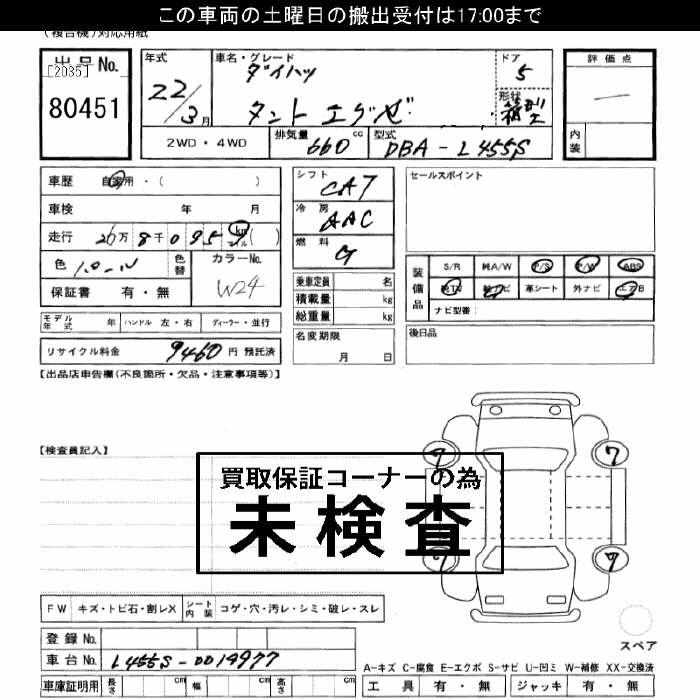 この車両の土曜日の搬出受付は17:00まで
(複合機)対応用紙
出品No.
[2035]
80451
年式
22/3月
車名・グレード
ダイハツ
タント エグゼ
ドア
5
形状
箱型
評価点
内装
2WD・4WD
排気量 660 cc
型式 DBA-L455S
車歴 自家用・( )
車検 年 月
シフト CAT
冷房 AAC
燃料 G
セールスポイント
色 パール
色替
カラーNo. W24
保証書 有・無
乗車定員 名
積載量 kg
総重量 kg
装備品
S/R 純A/W P/S P/W ABS
純TV 純ナビ 革シート 外ナビ エアB
ナビ型番:
モデル年式 年 ハンドル 左・右 ディーラー・並行
名変期限 月 日
後日品
リサイクル料金 9460 円 預託済
【出品店車告欄(不良箇所・欠品・注意事項等)】
【検査員記入】
買取保証コーナーの為
未検査
FW キズ・トビ石・割レX シート内装 コゲ・穴・汚レ・シミ・破レ・スレ
登録No.
車台No. L455S-0019977
スペア
A-キズ C-腐食 E-エクボ S-サビ U-凹ミ W-補修 XX-交換済
車庫証明用 長さ cm 幅 cm 高さ cm
工具 有・無 ジャッキ 有・無